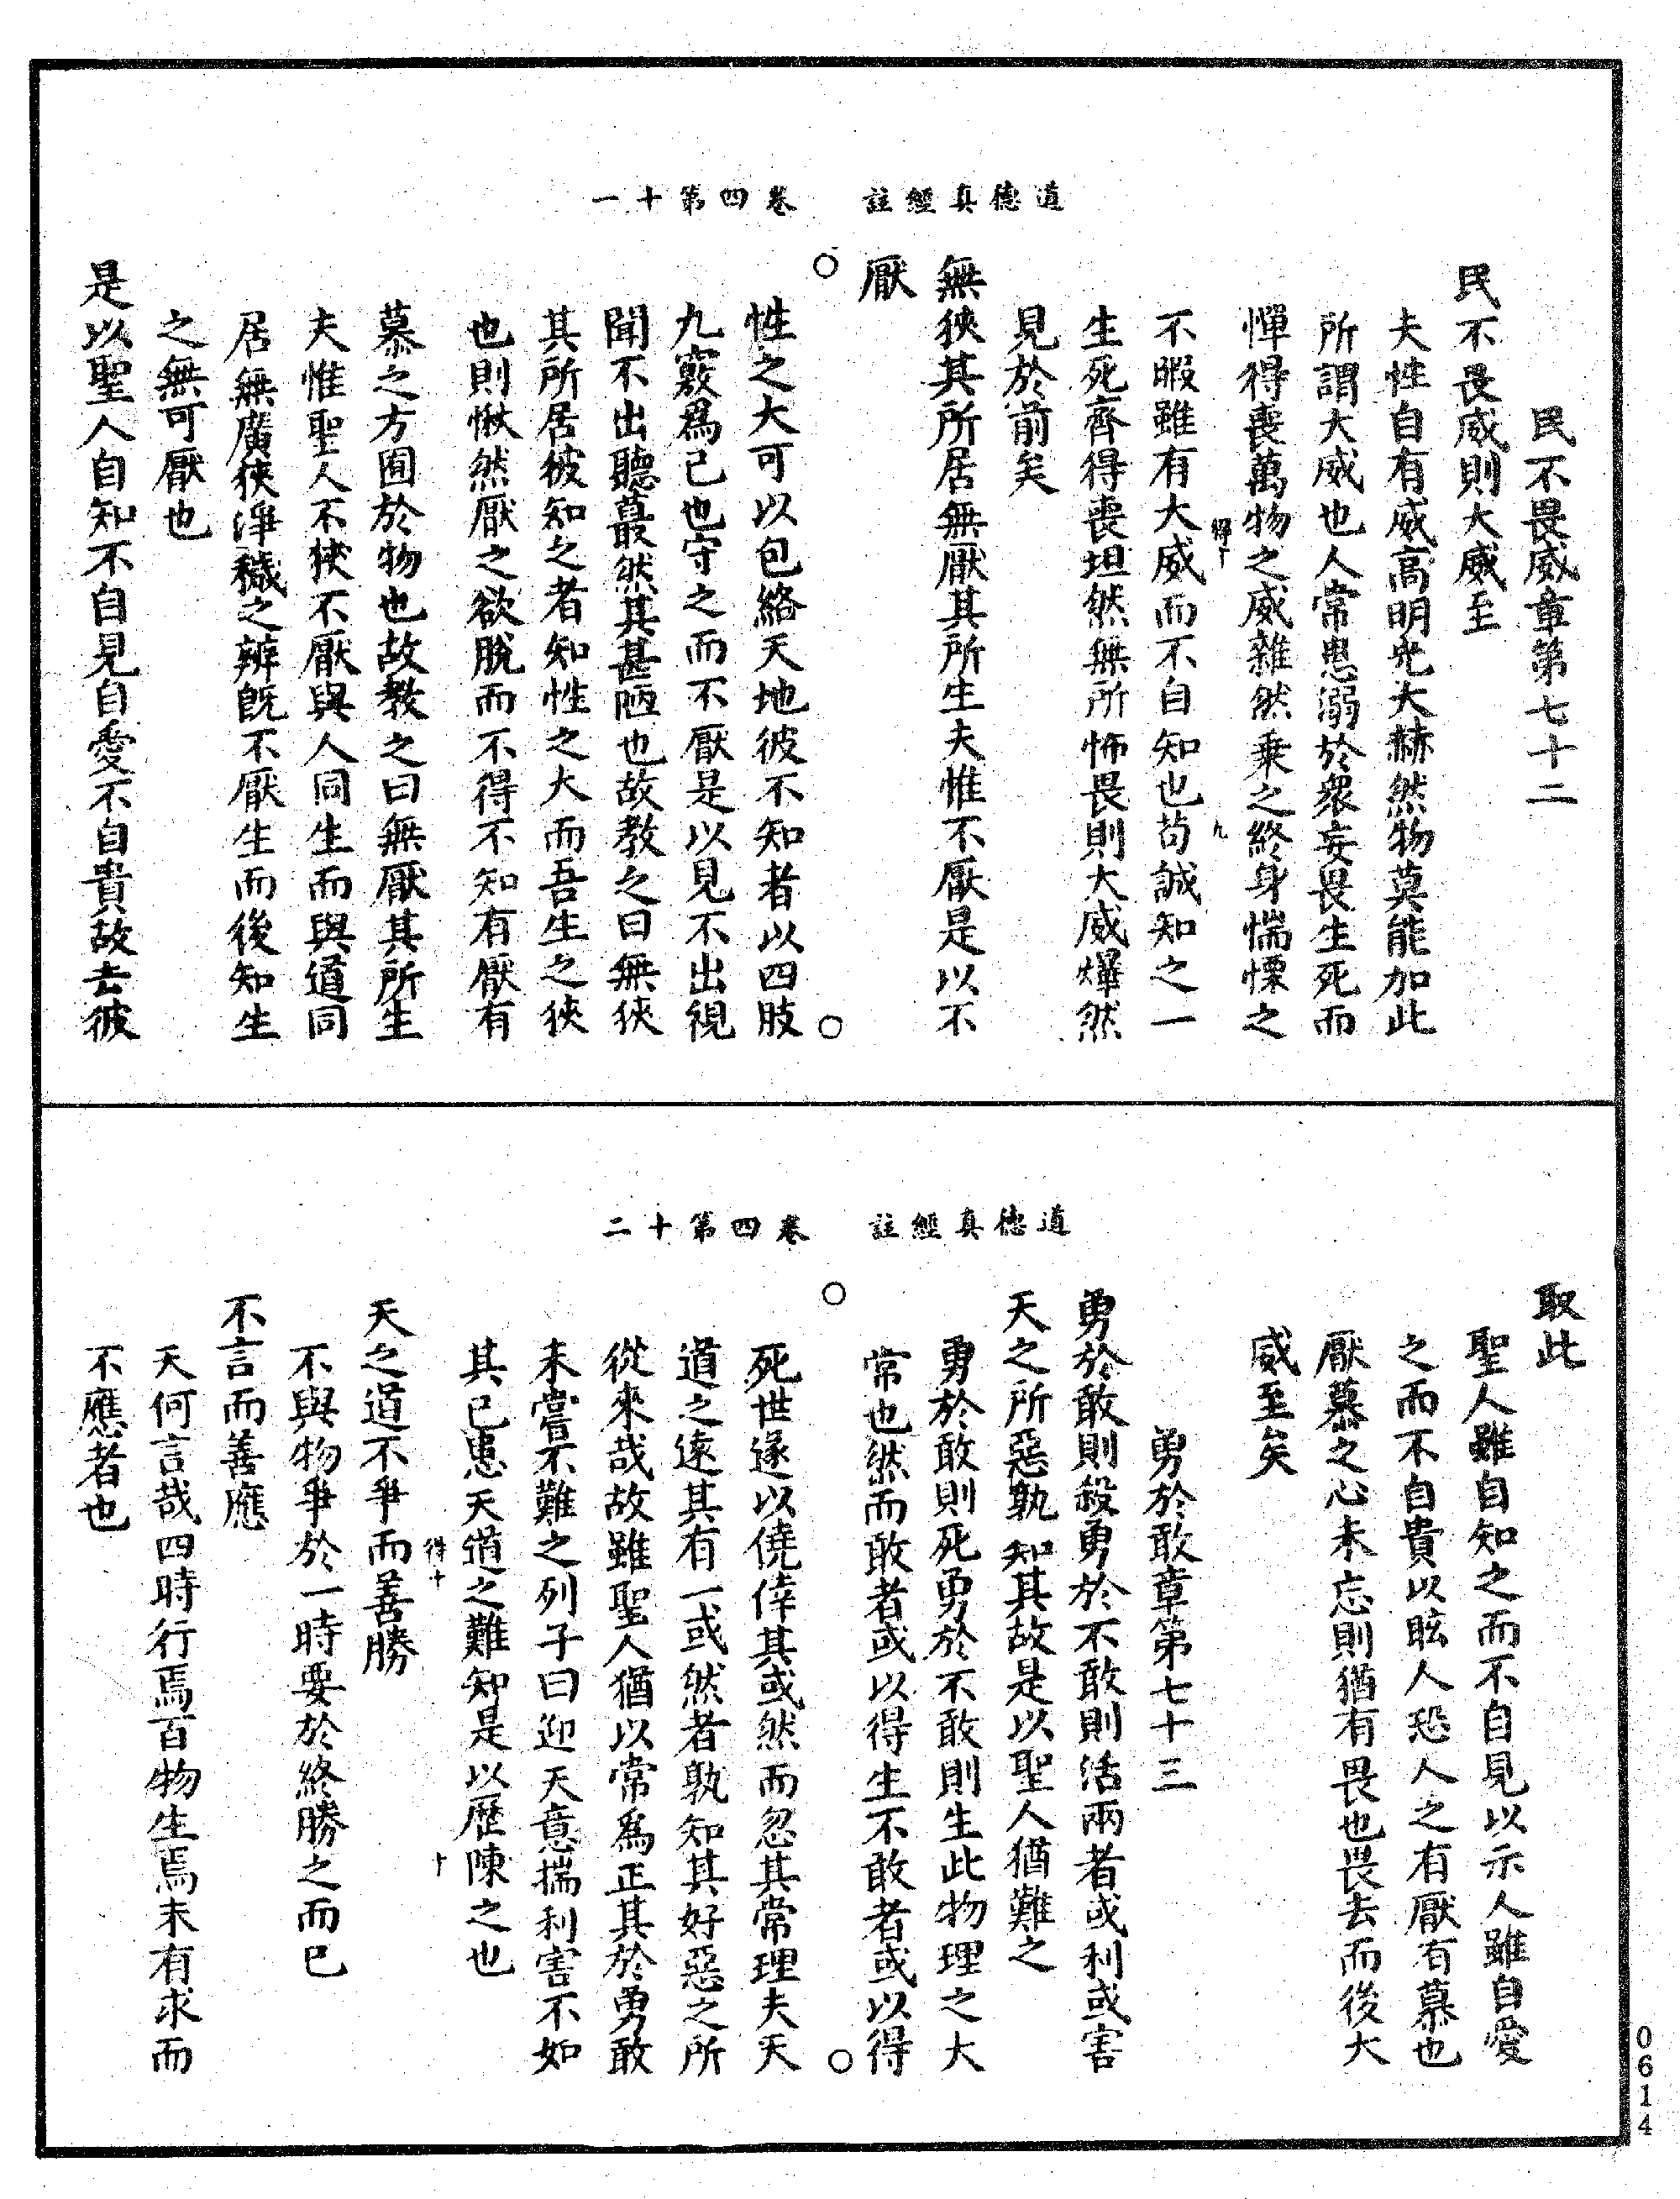 道德真經註　卷四第十一
民不畏威章第七十二
民不畏威則大威至
夫性自有威高明光大赫然物莫能加此
所謂大威也人常患溺於衆妄畏生死而
憚得喪萬物之威雜然乗之終身惴慄之
不暇雖有大威而不自知也苟誠知之一
得十　九
生死齊得喪坦然無所怖畏則大威燁然
見於前矣
無狹其所居無厭其所生夫惟不厭是以不
厭
性之大可以包絡天地彼不知者以四肢
九竅爲己也守之而不厭是以見不出視
聞不出聽蕞然其甚陋也故教之曰無狹
其所居彼知之者知性之大而吾生之狹
也則愀然厭之欲脫而不得不知有厭有
慕之方囿於物也故教之曰無厭其所生
夫惟聖人不狹不厭與人同生而與道同
居無廣狹淨穢之辨旣不厭生而後知生
之無可厭也
是以聖人自知不自見自愛不自貴故去彼
道德真經註　卷四第十二
取此
聖人雖自知之而不自見以示人雖自愛
之而不自貴以眩人恐人之有厭有慕也
厭慕之心未忘則猶有畏也畏去而後大
威至矣
勇於敢章第七十三
勇於敢則殺勇於不敢則活兩者或利或害
天之所惡孰知其故是以聖人猶難之
勇於敢則死勇於不敢則生此物理之大
常也然而敢者或以得生不敢者或以得
死世遂以僥倖其或然而忽其常理夫天
道之遠其有一或然者孰知其好惡之所
從來哉故雖聖人猶以常爲正其於勇敢
未嘗不難之列子曰迎天意揣利害不如
其已患天道之難知是以歷陳之也
得十　十
天之道不爭而善勝
不與物爭於一時要於終勝之而已
不言而善應
天何言哉四時行焉百物生焉未有求而
不應者也
0614